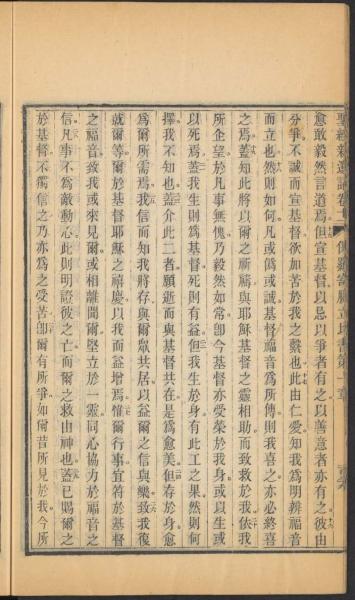 愈敢毅然言道焉但宣基督以忌以爭者有之以善意者亦有之彼由
分爭不誠而宣基督欲加苦於我之繫也此由仁愛知我爲明辨福音
而立也然則如何凡或偽或誠基督福音爲所傳則我喜之亦必終喜
之焉蓋知此將以爾之祈禱與耶穌基督之靈相助而致救於我依我
所企望於凡事無愧乃毅然如常卽今基督亦受榮於我身或以生或
以死焉蓋我生則爲基督死則有益但我生於身有此工之果然則何
擇我不知也蓋介此二者願逝而與基督共在是爲愈美但存於身愈
爲爾所需焉我信而知我將存與爾衆共居以益爾之信與樂致我復
就爾等爾於基督耶穌之禧慶以我而益增焉惟爾行事宜符於基督
之福音致我或來見爾或相離聞爾堅立於一靈同心協力於福音之
信凡事不爲敵動心此則明證彼之亡而爾之救由神也蓋已賜爾之
於基督不獨信之乃亦爲之受苦卽爾有所爭如爾昔所見於我今所